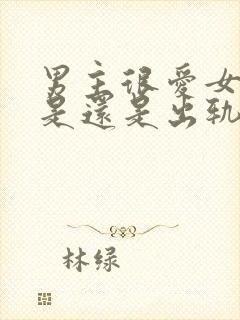 男主很爱女
是还是出轨
林绿